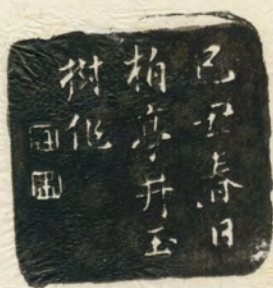 己丑春日
柏亭井玉
樹作